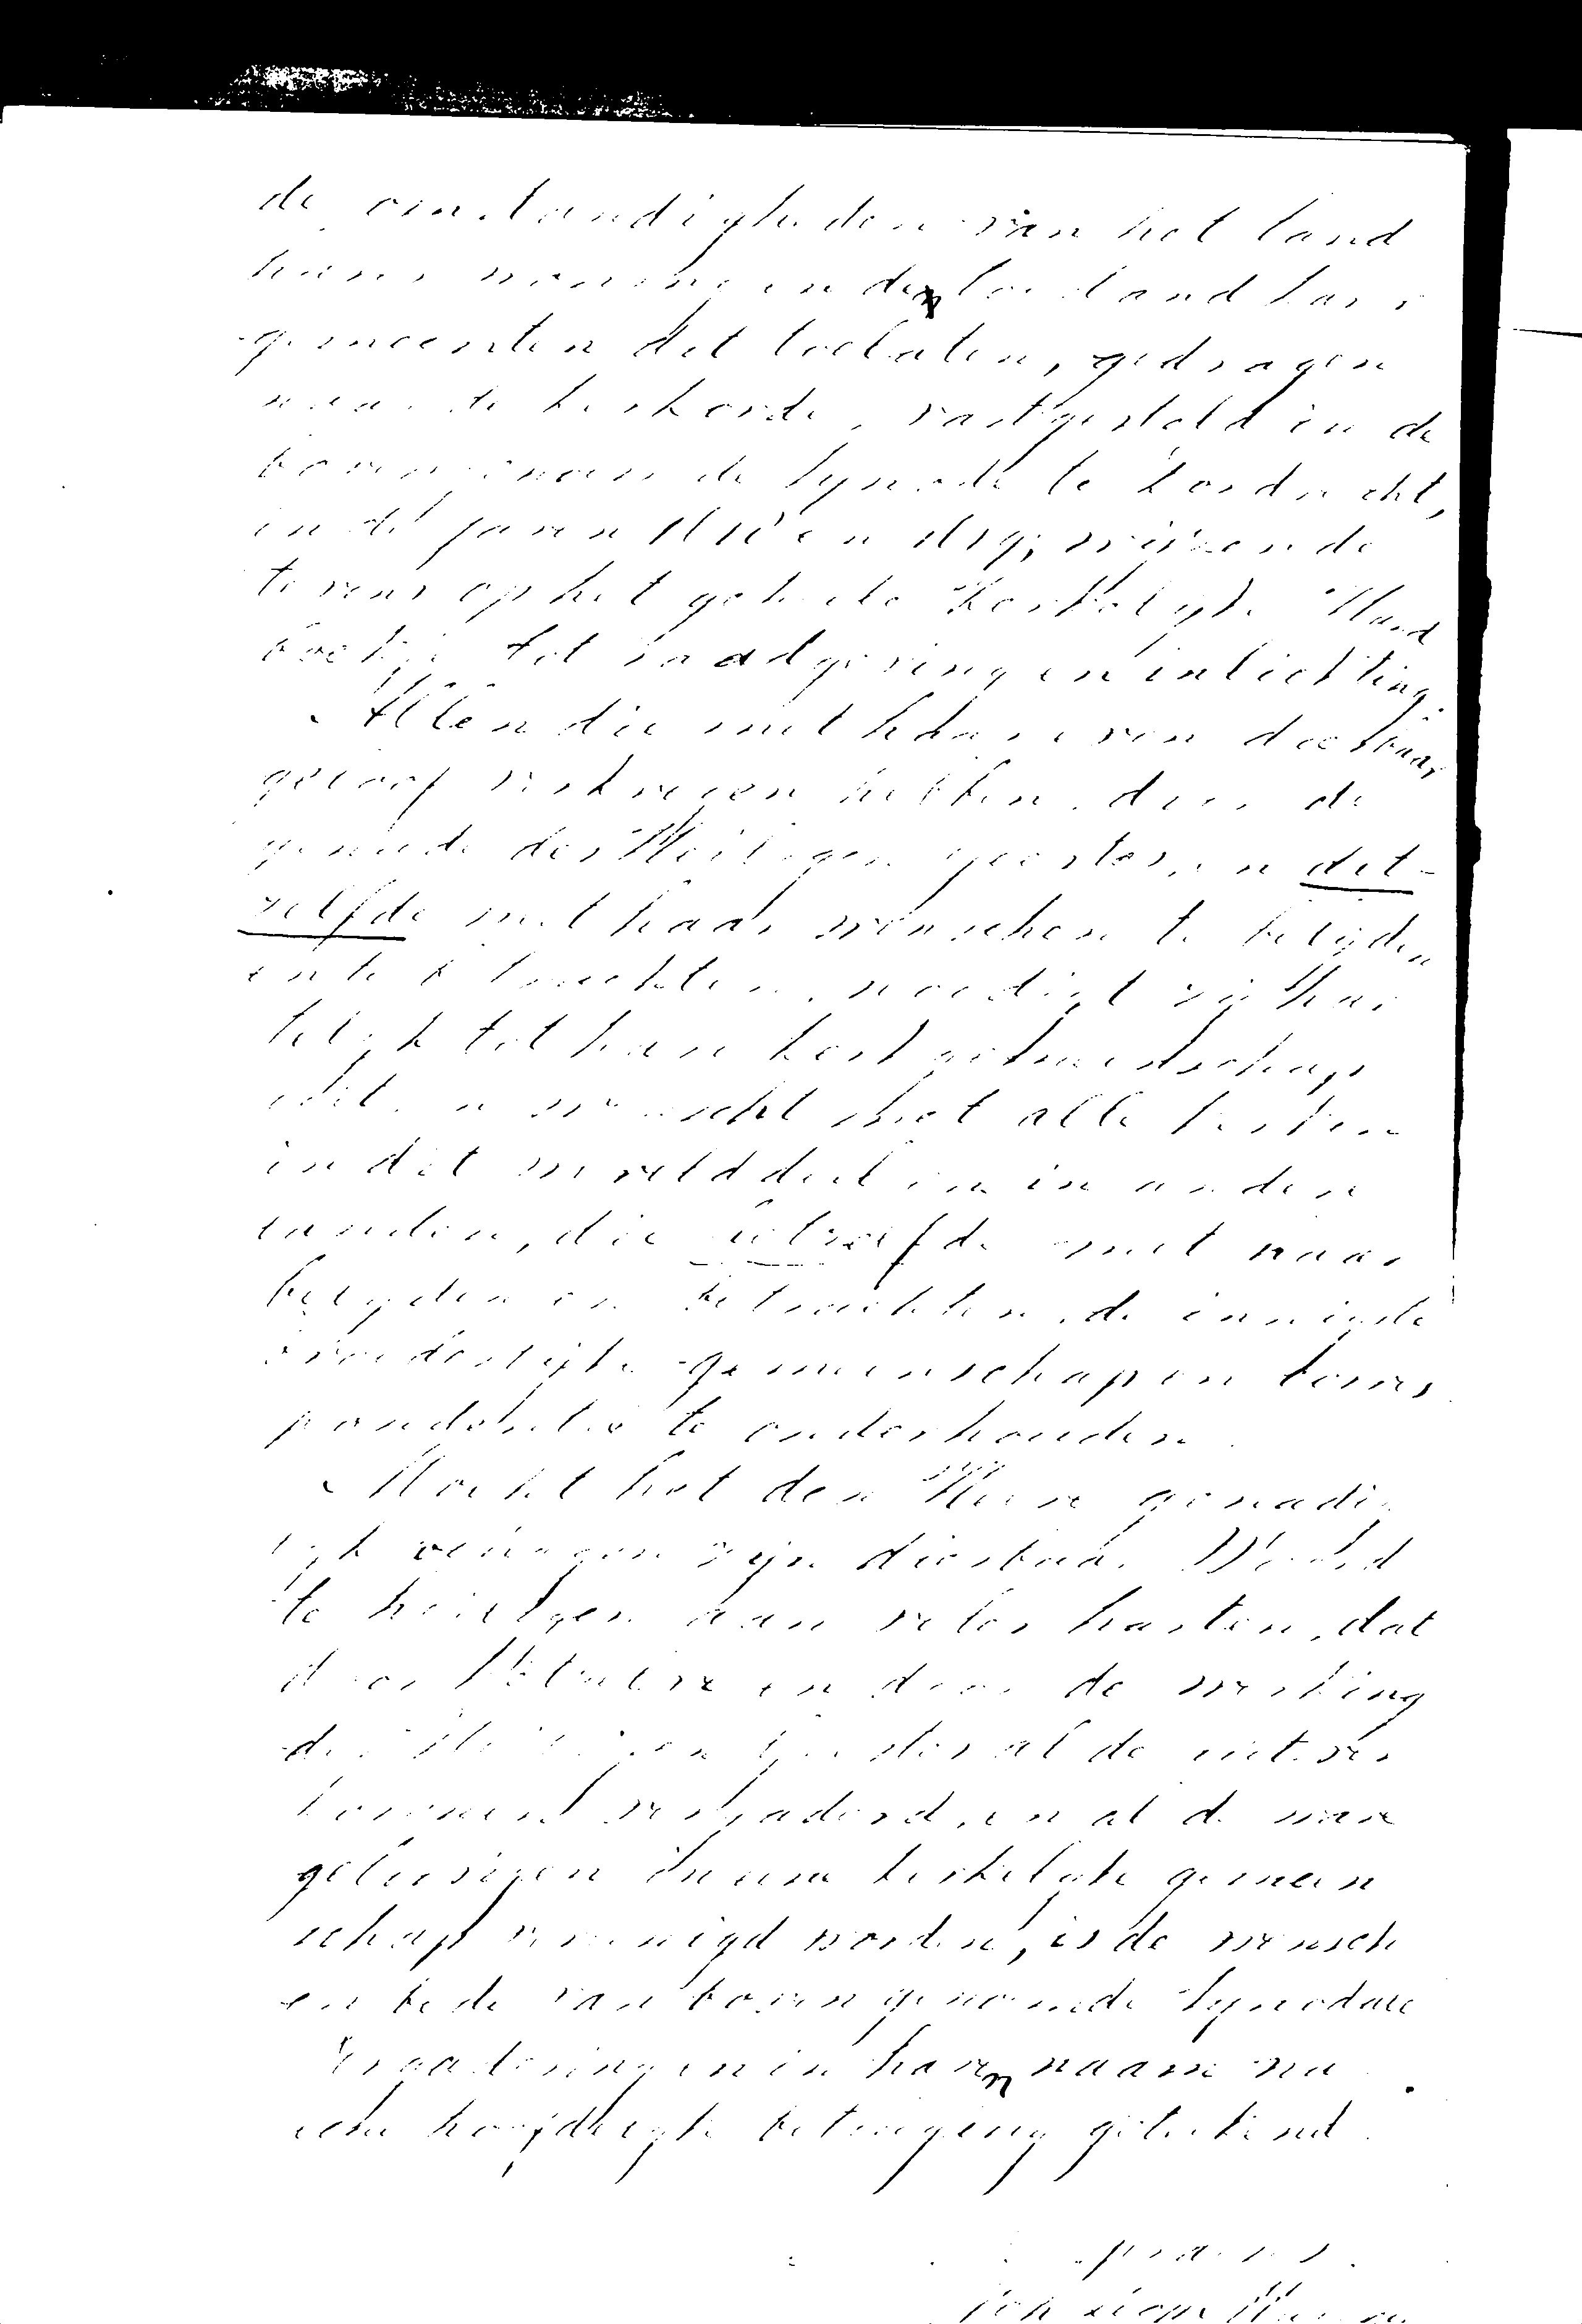 de omstandigheden van het land
harer woning en den toestand harer
gemeenten dit toelaten, gedragen
naar de kerkorde, vastgesteld in de
bovengenoemde Synode te Dordrecht,
in de jaren 1618 en 1619; wijzende
tevens op het geheele Kerkelijk Hand
boekje tot raadgeving en inlichting.
Allen die met haar even dierbaar
geloof verkregen hebben, door de
genade des Heiligen Geestes, en dit-
zelfde met haar wenschen te belijden
en te betrachten, noodigt zij har
telijk tot hare kerkgemeenschap
uit, en wenscht met alle kerken
in dit werelddeel en in andere
landen, die ditzelfde met haar
belijden en betrachten, de innigste
broederlijke gemeenschap en corres
pondentie te onderhouden.
Mocht het den Heere genadi
lijk behagen zijn dierbaar Woord
te heiligen aan veler harten, dat
door hetzelve en door de werking
des Heiligen Geestes al de uitver
korenen vergaderd, en al de ware
geloovigen in eene kerkelijke gemeen
schap vereenigd worden, is de wensch
en bede van bovengenoemde Synodale
Vergadering en in haren naam na
gedane betuiging geteekend.